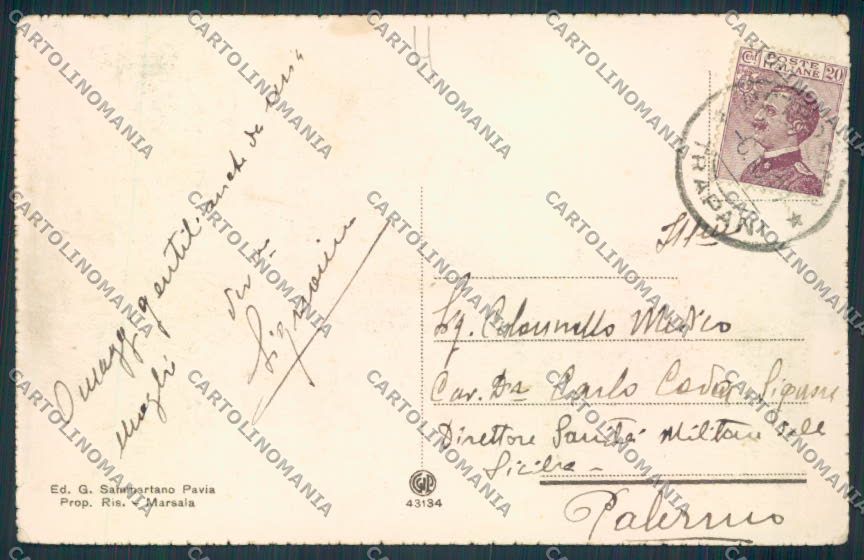 Omaggi gentili anche da mia
moglie
Cmi POSTE ITALIANE 20
TRAPANI
Ill/mo
Sg. Colonnello Medico
Cav. Dr. Carlo
Direttore Sanità Militare della
Sicilia
Palermo
Ed. G. Sammartano Pavia
Prop. Ris. - Marsala
43134
CARTOLINOMANIA